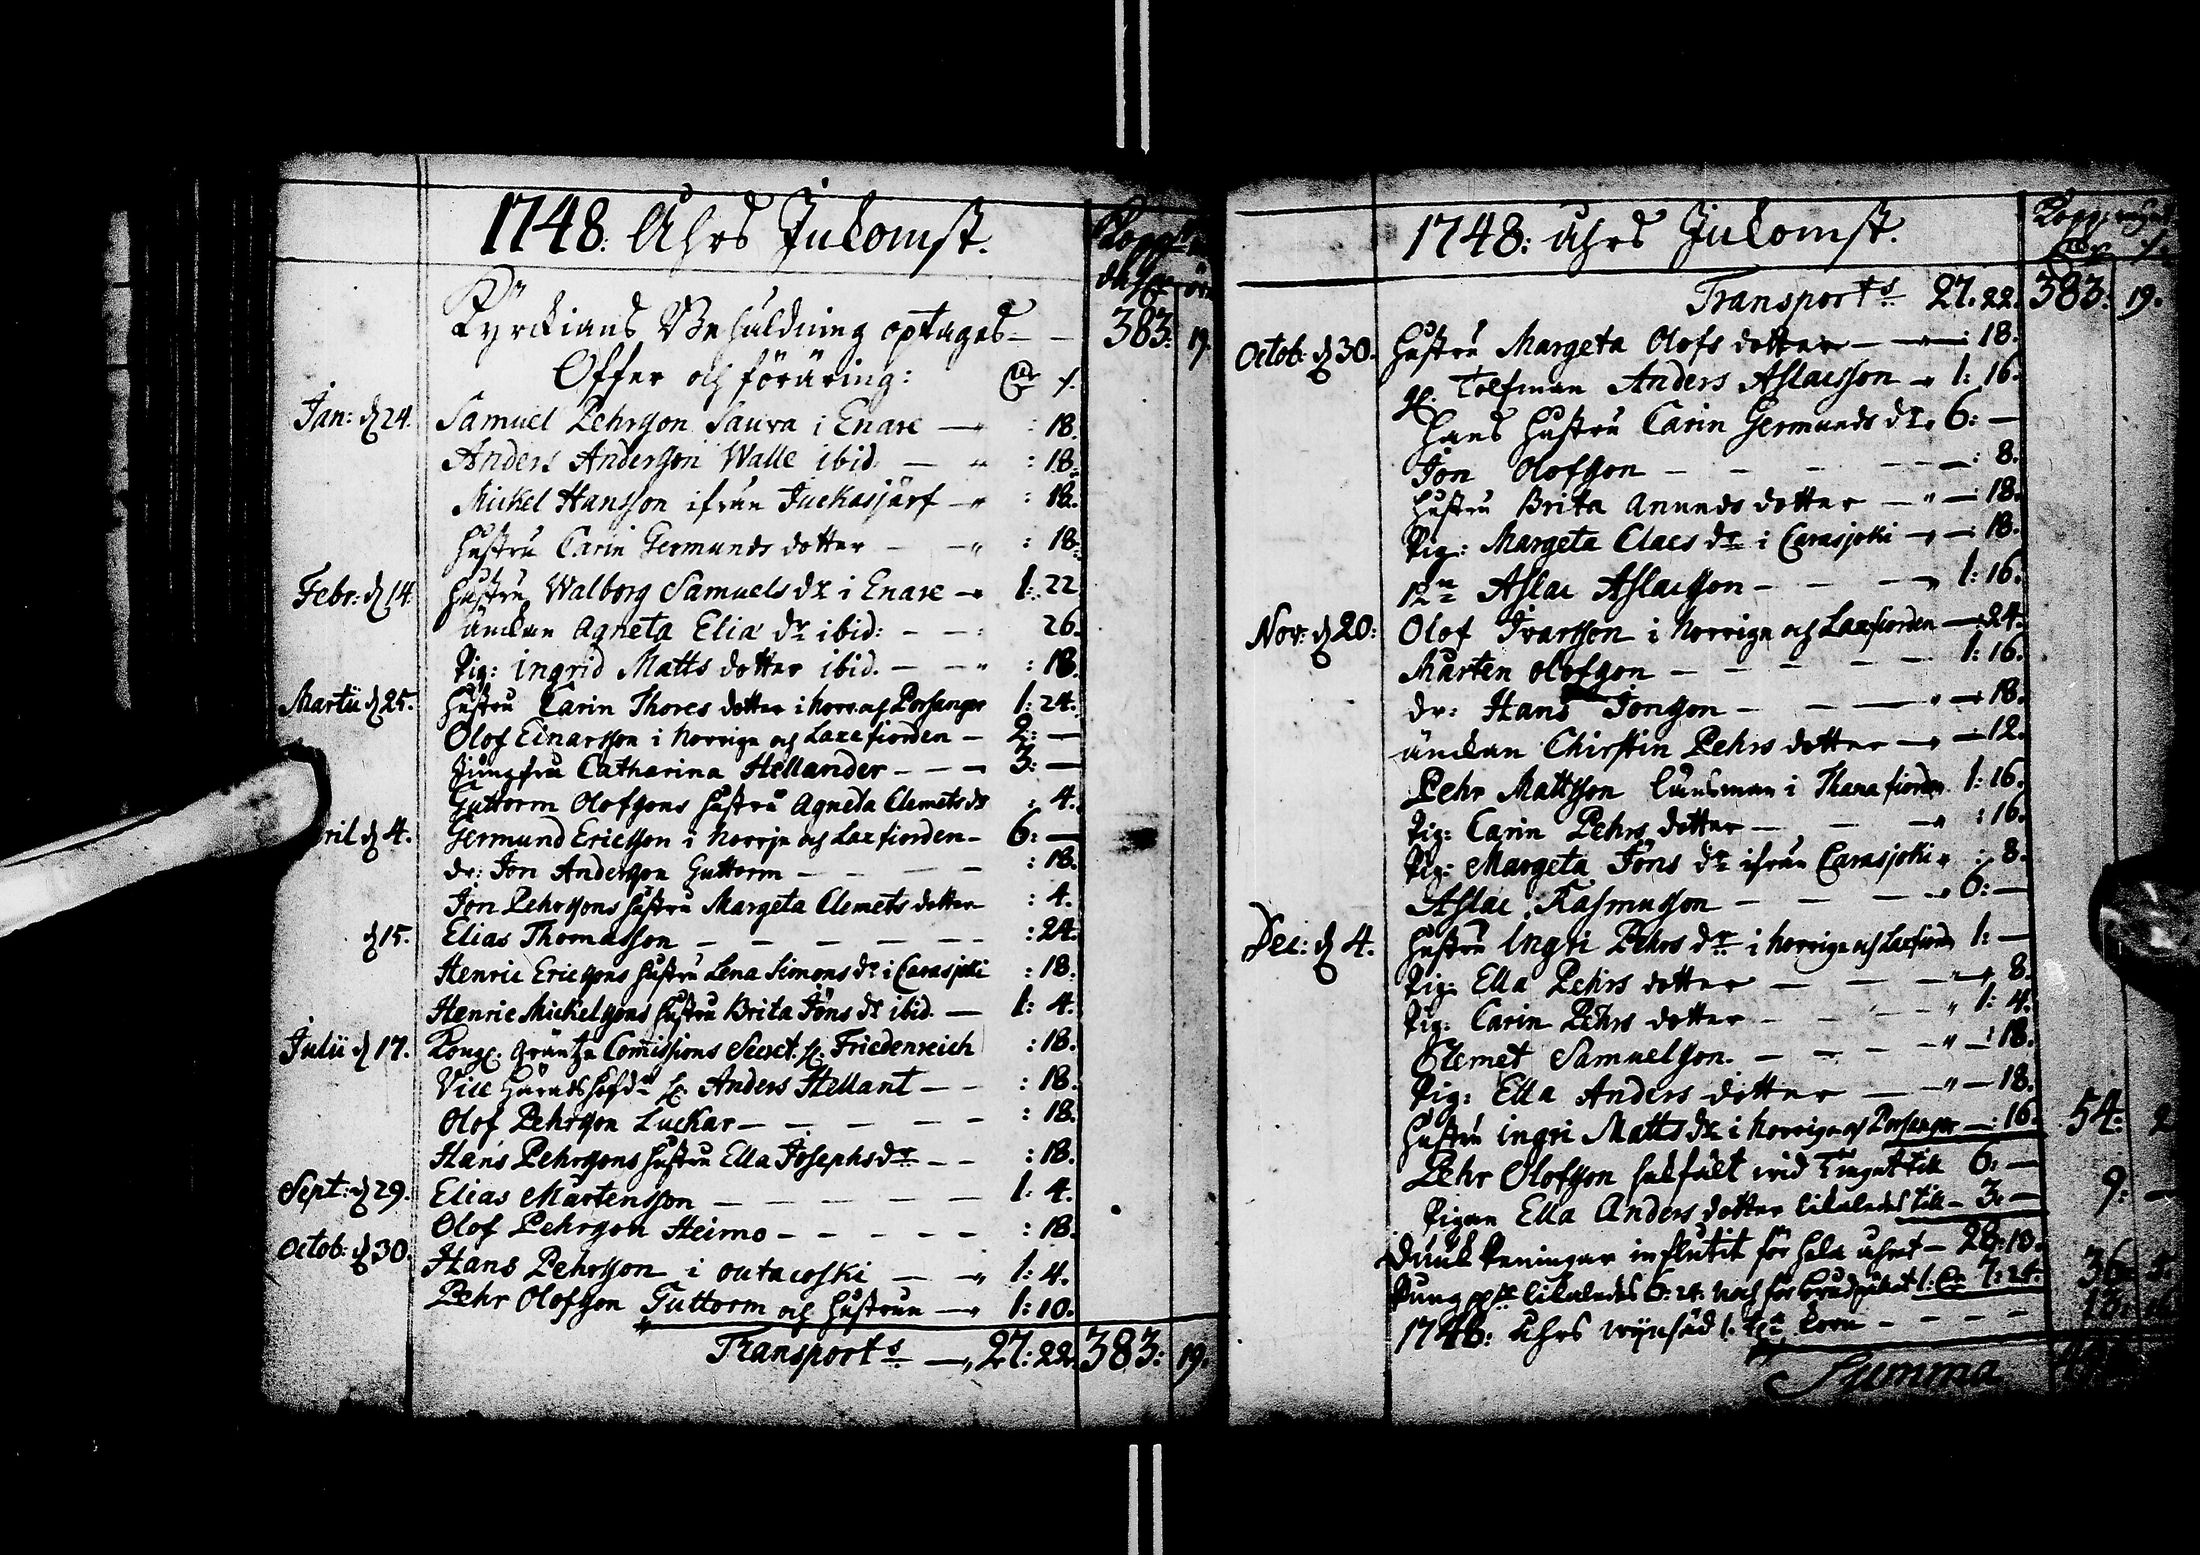 1748. Åhrs Inkomst.
Kyrckians Behåldning optages — 383: 19.
Offer och föräring:
Jan: d 24. Samuel Pehrsson Saura i Enare — : 18.
Anders Andersson Walle ibid. — : 18.
Mickel Hansson ifrån Juckasjärf — : 18.
Hustru Carin Germunds dotter — : 18.
Febr: d 14. Hustru Walborg Samuels dr i Enare — 1: 22.
änckan Agneta Eliæ dr ibid: — 26.
Pig: Ingrid Matts dotter ibid. — : 18.
Martii d 25. Hustru Carin Thores dotter i Norr. och Porsanger 1: 24.
Olof Einarsson i Norrige och Laxefiorden — 2: —
Jungfru Catharina Hellander — 3: —
Guttorm Olofsons Hustru Agneta Clemets dr : 4.
ril d 4. Germund Ericsson i Norrje och Laxefiorden — 6: —
dr: Jon Andersson Guttorm — : 18.
Jon Pehrssons Hustru Margeta Clemets dotter : 4.
d 15. Elias Thomasson — : 24.
Henric Ericsons Hustru Lena Simons dr i Carasjoki : 18.
Henric Mickelsons Hustru Brita Jöns dr ibid. — 1: 4.
Julii d 17. Kongl. Gräntze Comissions Secret. H. Friedenreich : 18.
Vice Häradshöfd. H. Anders Hellant — : 18.
Olof Pehrson Luckar — : 18.
Hans Pehrsons Hustru Ella Josephs dr — : 18.
Sept: d 29. Elias Mårtensson — 1: 4.
Olof Pehrson Heimo — : 18.
Octob: d 30. Hans Pehrsson i Outacoski — 1: 4.
Pehr Olofson Guttorm och Hustrun — 1: 10.
Transport — 27: 22. 383: 19.
1748: Åhrs Inkomst.
Transport 27. 22. 383: 19.
Octob: d 30. Hustru Margeta Olofs dotter — : 18.
H. Tolfman Anders Aslacsson — 1: 16.
Hans Hustru Carin Germunds dr 6: —
Jon Olofson — : 8.
Hustru Brita Anunds dotter — : 18.
Pig: Margeta Claes dr i Carasjoki — : 18.
12n Aslac Aslacson — 1: 16.
Nov: d 20: Olof Ivarsson i Norrige och Laxefiorden — : 24.
Mårten Olofson — 1: 16.
dr: Hans Jonson — 18.
änckan Chirstin Pehrs dotter — 12.
Pehr Mattsson länsman i Thana fiorden 1: 16.
Pig: Carin Pehrs dotter — : 16.
Pig: Margeta Jöns dr ifrån Carasjoki : 8.
Aslac Rasmuson — 6: —
Dec: d 4. Hustru Ingri Pehrs dr i Norrige och Laxfiorden 1: —
Pig: Ella Pehrs dotter — 8.
Pig: Carin Pehrs dotter — 1: 4.
Clemet Samuelson — : 18.
Pig: Ella Anders dotter — 18.
Hustru Ingri Matts dr i Norrige och Porsanger — : 16. 54: 2
Pehr Olofson sakfält wid Tinget till 6: —
Pigan Ella Anders dotter likaledes till — 3: — 9: —
Penningar influtit för hela åhret — 28: 13.
Pung likaledes 6: 24: och för 7: 24. 36: 5.
1748: Åhrs 1. korn — 13:
Summa